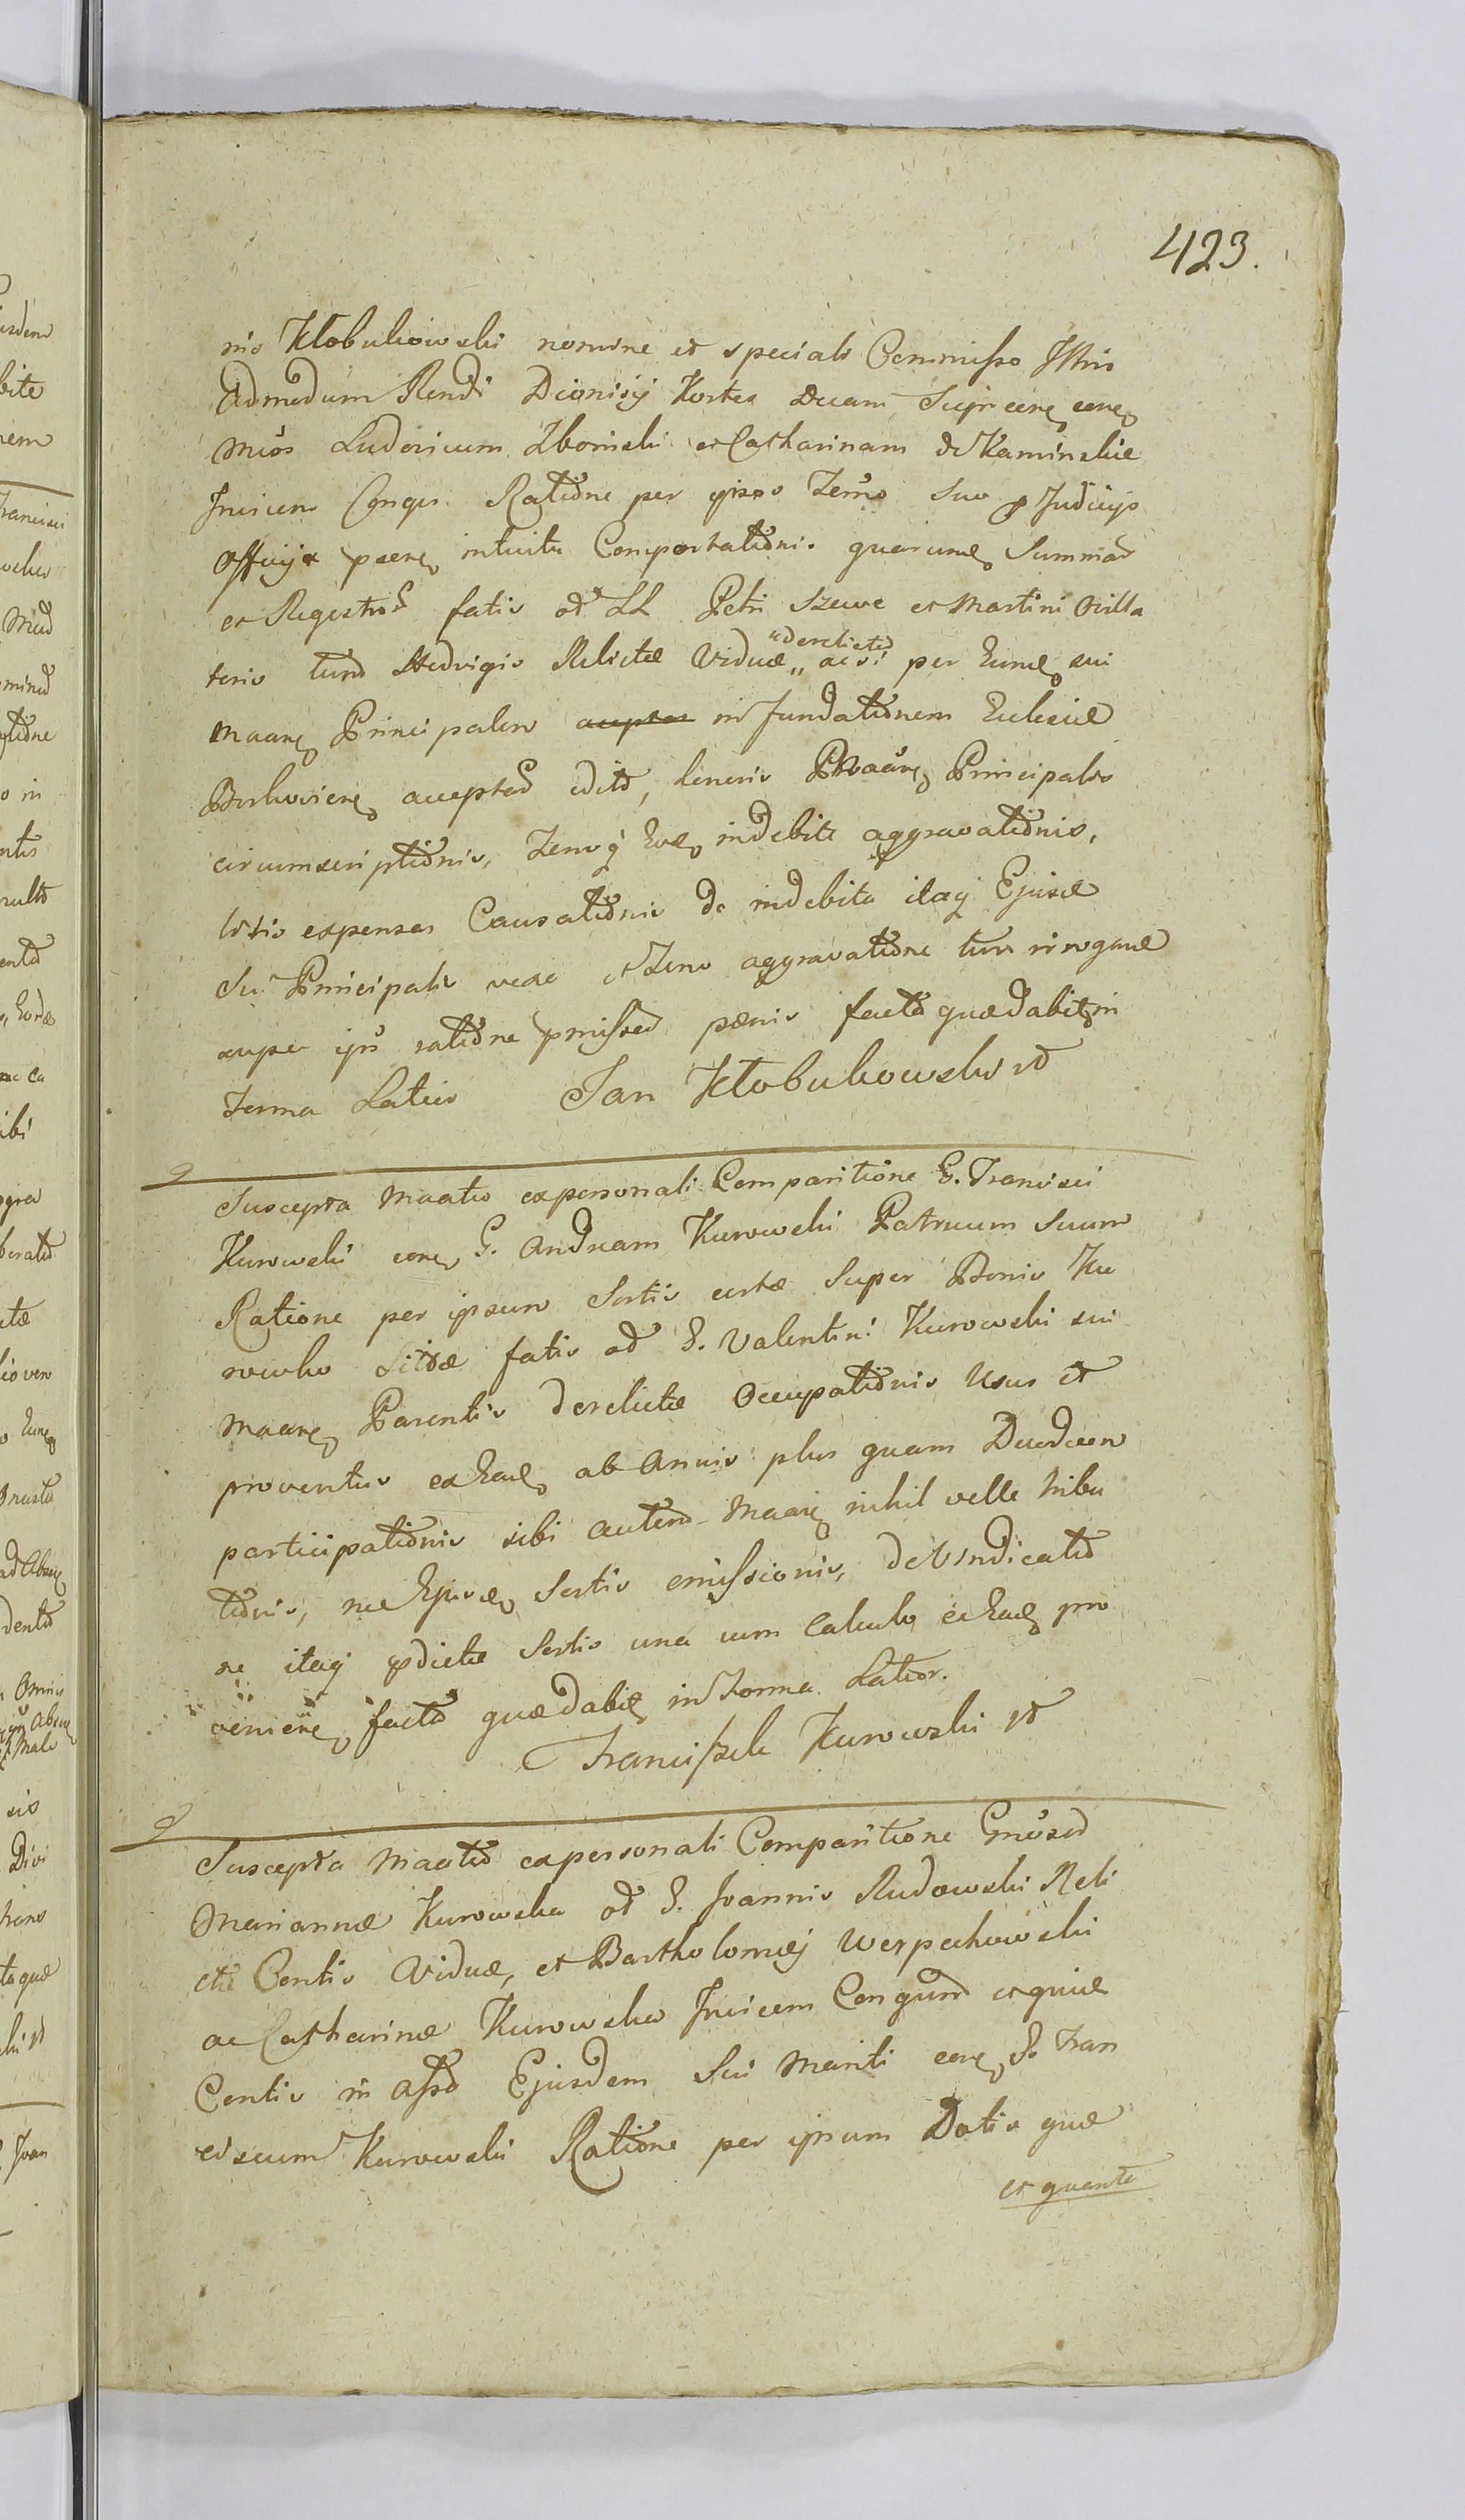 423.
nis Kłobukowski nomine et speciali Commisso Illris
Admodum Rendi Dionisij Kostka Decani Suprcone cone
Mcos Ludovicum Zboinski et Catharinam de Kaminskie
Invicem Conges Ratione per ipsos Termo suo Judicijs
Officij intuitu Comportationis quarume Summar
et Regestror fatis od LL Petri Szewc et Martini Villa
teris tum Hedvigis Relictæ Viduæ „ ac si per Eume sui
"derelictor
Maare Principalem in fundationem Ecclesiæ
acceptar edito, Principalis
circumscriptionis, indebite aggravationis,
litis expensas Causationis de indebita itaq Ejusd
Sui Principalis vexa et aggravatione tum irrogand
super ijs ratione pmissor pænis facto quædabit in
Forma Latiss Jan Kłobukowski
Suscepta Maatio ex personali Comparitione G. Francisci
Kurowski cone G. Andream Kurowski Patruum Suum
Ratione per ipsum Sortis certæ Super Bonis Ku
rowko Sitæ fatis od G. Valentini Kurowski sui
Maare Parentis derelictæ Occupationis Usus et
proventus ex Ead ab Annis plus quam Duodecem
participationis sibi autem Maari nihil velle tribu
tionis, nec Ejusd Sortis emissionis, de Vindicatio
ne itaq pdictæ Sortis una cum Calculo ex Ead pro
veniene facto quædabit in Forma Latior.
Franciszek Kurowski
Suscepta Maatio ex personali Comparitione Gnosar
Mariannæ Kurowska od G. Joannis Rudowski Reli
ctæ Contis Viduæ, et Bartholomæj Werpechowski
ac Catharinæ Kurowska Invicem Congum
Contis in Assa Ejusdem Sui Mariti cone G. Fran
ciscum Kurowski Ratione per ipsum Dotis quæ
et quantæ